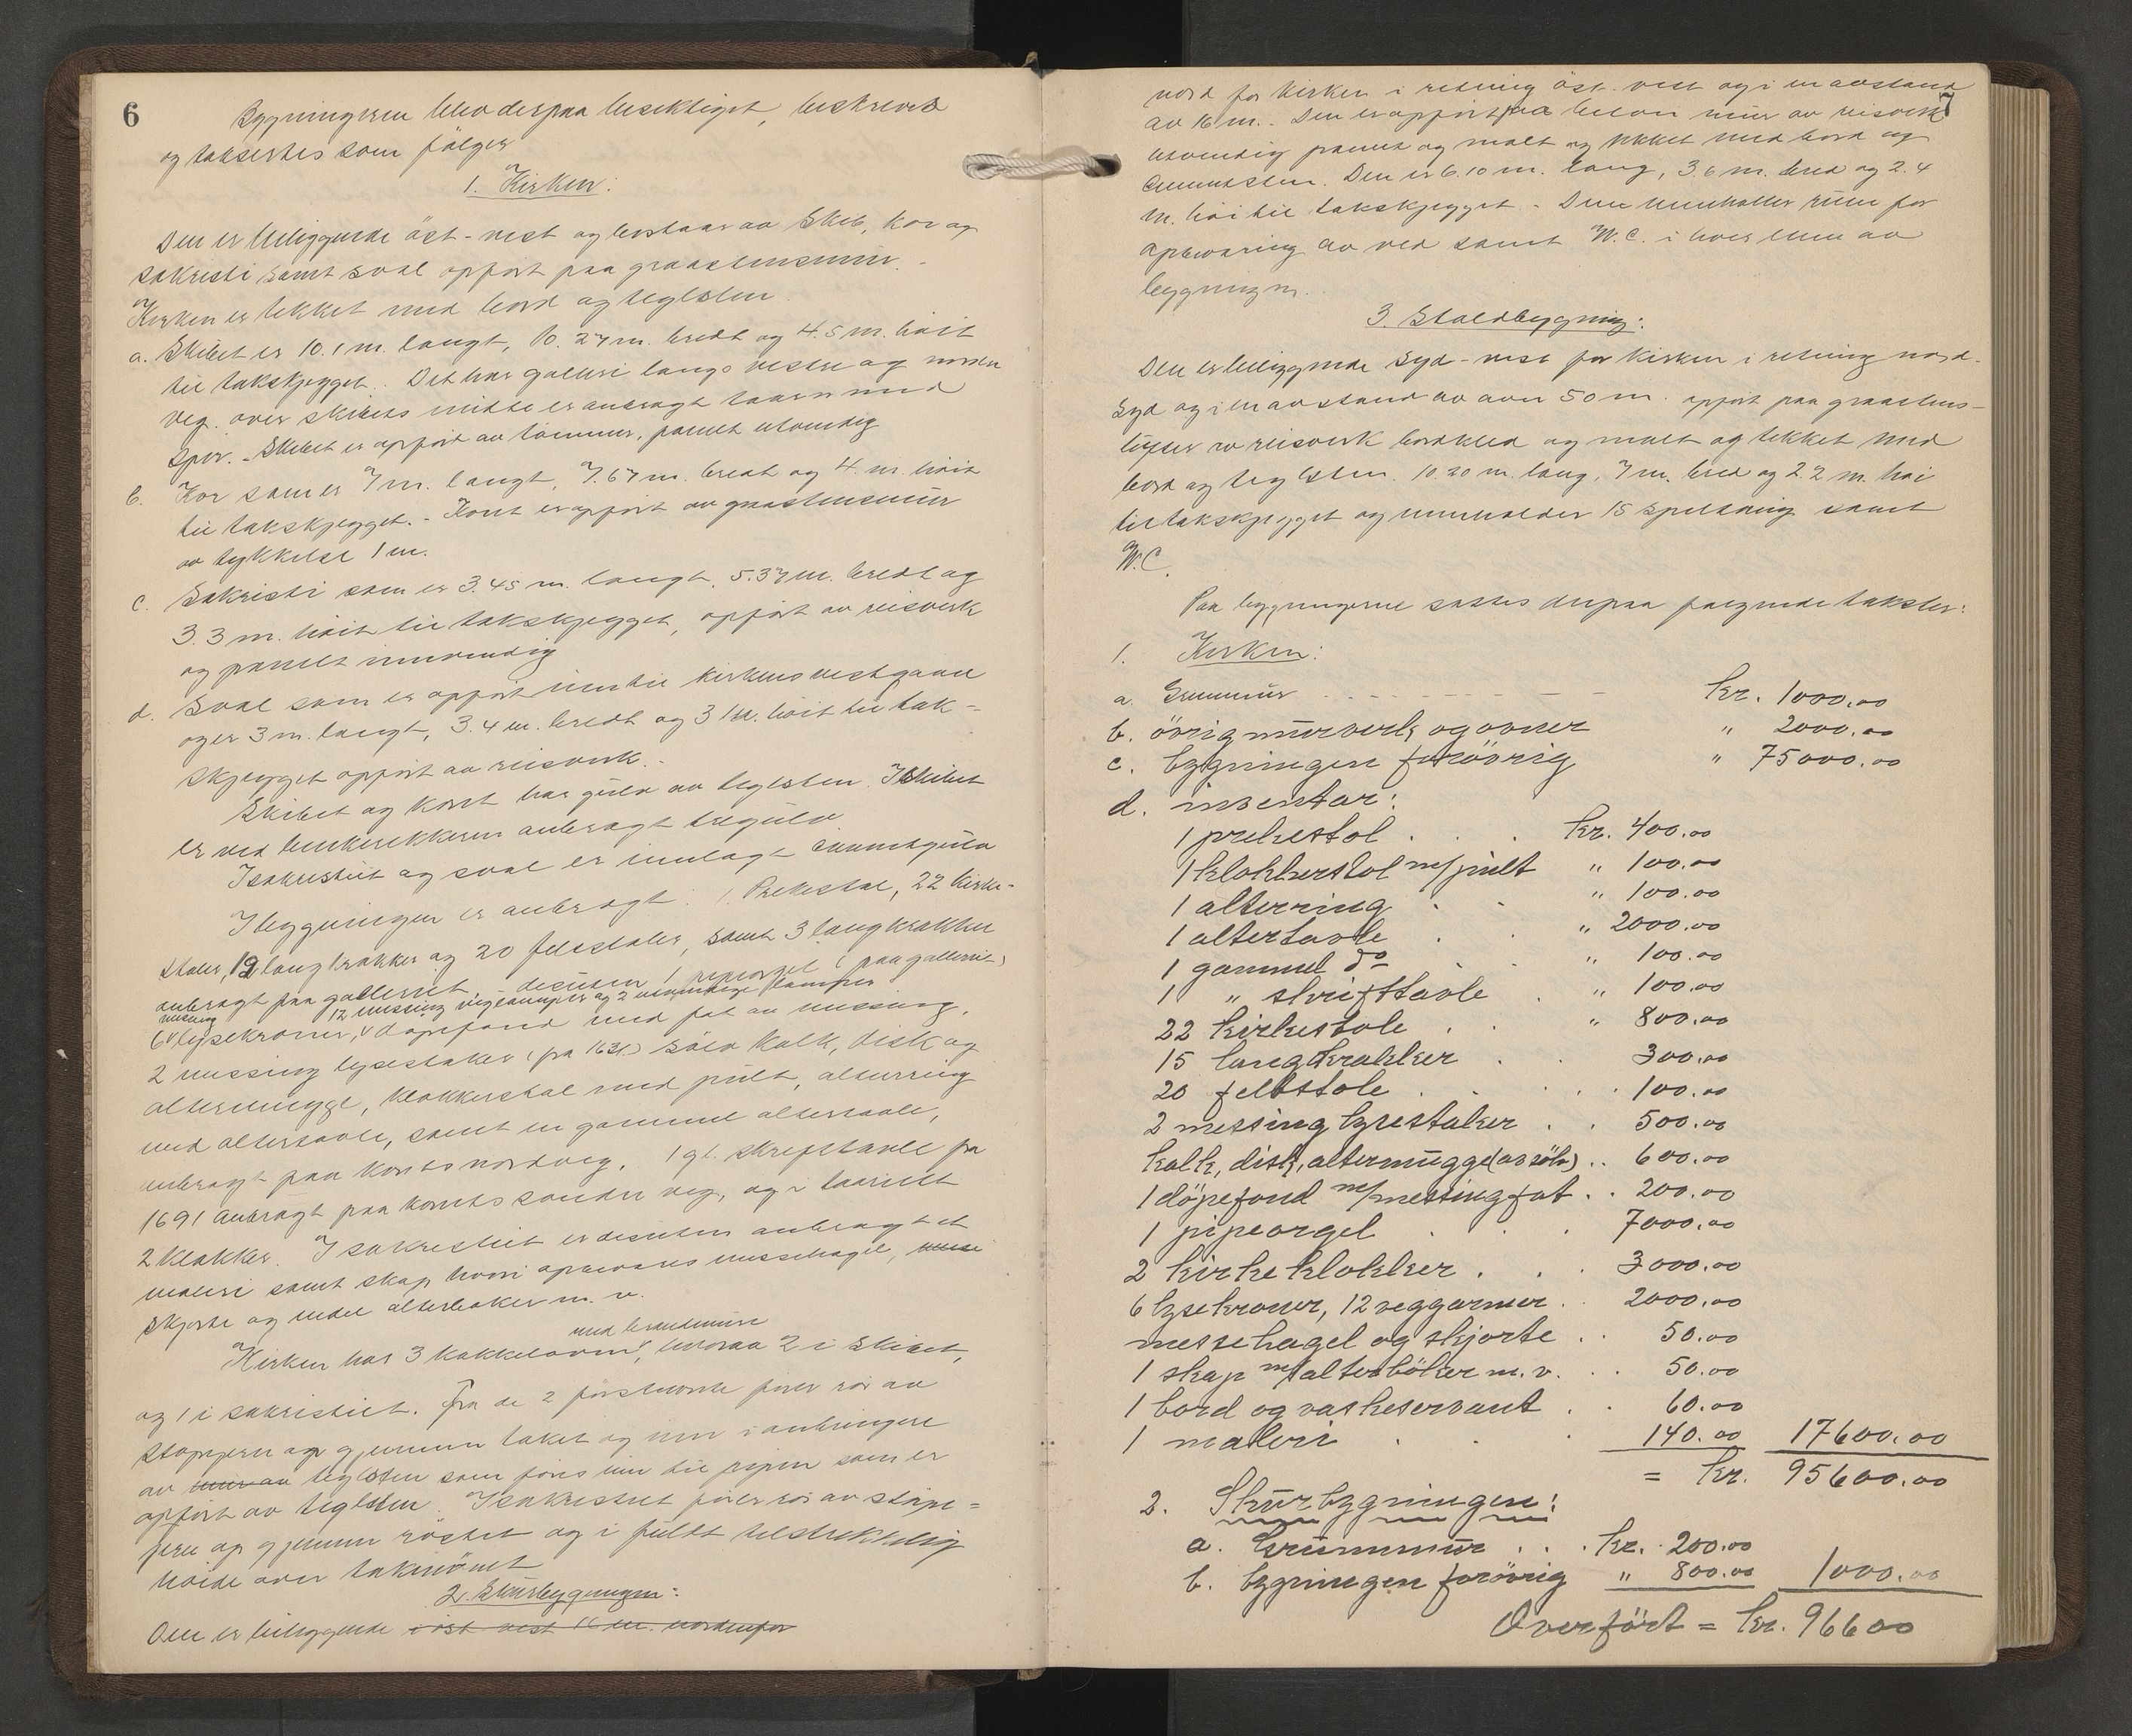 6
Bygningerne blev derpaa besiktiget, beskrevet
og taksertes som følger
1. Kirken:
Den er beliggende öst-vest og bestaar av Skib, kor og
sakristi samt sval opfört paa graastensmür.
Kirken er tekket med bord og teglsten.
a. Skibet er 10.1 m. langt, 10.27 m. bredt og 4.5 m. höit
til takskjegget. Det har galleri langs vestre og nordre
veg. over skibets midte er anbragt taarn med
Spir. - Skibet er opfört av tömmer, panelt utvendig
b. Kor som er 7 m. langt, 7.67 m. bredt og 4. m. höit
til takskjegget. - Koret er opfört av graastensmür
av tykkelse 1 m.
c. Sakristi som er 3.45 m. langt, 5.37 m. bredt og
3.3 m. höit til takskjegget, opfört av reisverk
og panelt innvendig
d. Sval som er opfört inntil kirkens vestgavl
og er 3 m. langt, 3.4 m. bredt og 3 m. höit til tak-
skjegget opfört av reisverk. -
Skibet og koret har gülv av teglsten. I Skibet
er ved benkerekkerne anbragt tregülv
I sakristiet og sval er innlagt sementgülv
I bygningen er anbragt: 1 Prekestol, 22 kirke-
stoler, 12 langkrakker og 20 feltstoler, samt 3 langkrakker
anbragt paa galleriet, desüten 1 pipeorgel (paa galleriet)
messing 12 messing vegglamper og 2 utvendige lamper
6 lysekroner, döpefond med fat av messing,
2 messing lysestaker (fra 1631) sölv kalk, disk og
altermügge, klokkerstol med pült, alterring
med altertavle, samt en gammel altertavle,
anbragt paa korets nordveg, 1 gl. skrifttavle fra
1691 anbragt paa korets søndre veg, og i taarnet
2 klokker. I sakristiet er desüten anbragt et
maleri samt skap hvori opbevares messehagel, messe
skjorte og endel alterböker m. v.
med brandmüre
Kirken har 3 kakkelovner, hvorav 2 i Skibet,
og 1 i sakristiet. Fra de 2 förstnevnte förer rör av
stöpejern op gjennem taket og inn i anbringere
av mur av teglsten som föres inn til pipen som er
opfört av teglsten. I sakristiet förer rör av stöpe=
jern op gjennem röstet og i füllt tilstrekkelig
höide over takmönet
2. Skürbygningen:
Den er beliggende i öst-vest 16 m. nordenfor
7
nord for kirken i retning öst-vest og i en avstand
av 16 m. Den er opfört paa beton mür av reisverk
utvendig panelt og malt og tekket med bord og
cementsten. Den er 6.10 m. lang, 3.6 m. bred og 2.4
m. höi til takskjegget. - Den inneholder rüm for
opbevaring av ved samt W.C. i hver ende av
bygningen.
3. Staldbygning:
Den er beliggende Syd-vest for kirken i retning nord-
Syd og i en avstand av over 50 m. opfört paa graastens-
av reisverk bordkled og malt og tekket med
bord og teglsten. 10.20 m. lang, 7 m. bred og 2.2 m. höi
til takskjegget og inneholder 15 spiltaug samt
W.C.
Paa bygningerne sattes derpaa følgende takster:
1. Kirken:
a. Grunmür - - - - - - kr. 1000.00
b. övrig mürverk og ovner " 2000.00
c. bygningen forövrig " 75000.00
d. inventar:
1 prekestol . . . kr. 400.00
1 klokkerstol m/pült " 100.00
1 alterring . . " 100.00
1 altertavle . . " 2000.00
1 gammel do . " 100.00
1 " skrifttavle . " 100.00
22 kirkestole . . " 800.00
15 langkrakker . . 300.00
20 feltstole . . . 100.00
2 messing lysestaker . . 500.00
kalk, disk, altermügge (av sölv) . . 600.00
1 döpefond m/messingfat . . 200.00
1 pipeorgel . . . 7000.00
2 kirkeklokker . . . 3000.00
6 lysekroner, 12 veggarmer . . 2000.00
messehagel og skjorte . . 50.00
1 skap m/alterböker m. v. . . 50.00
1 bord og vaskeservant . . 60.00
1 maleri . . . 140.00 17600.00
= kr. 95600.00
2. Skürbygningen:
a. Grünnmür . . . kr. 200.00
b. bygningen forövrig " 800.00 1000.00
Overfört = kr. 96600